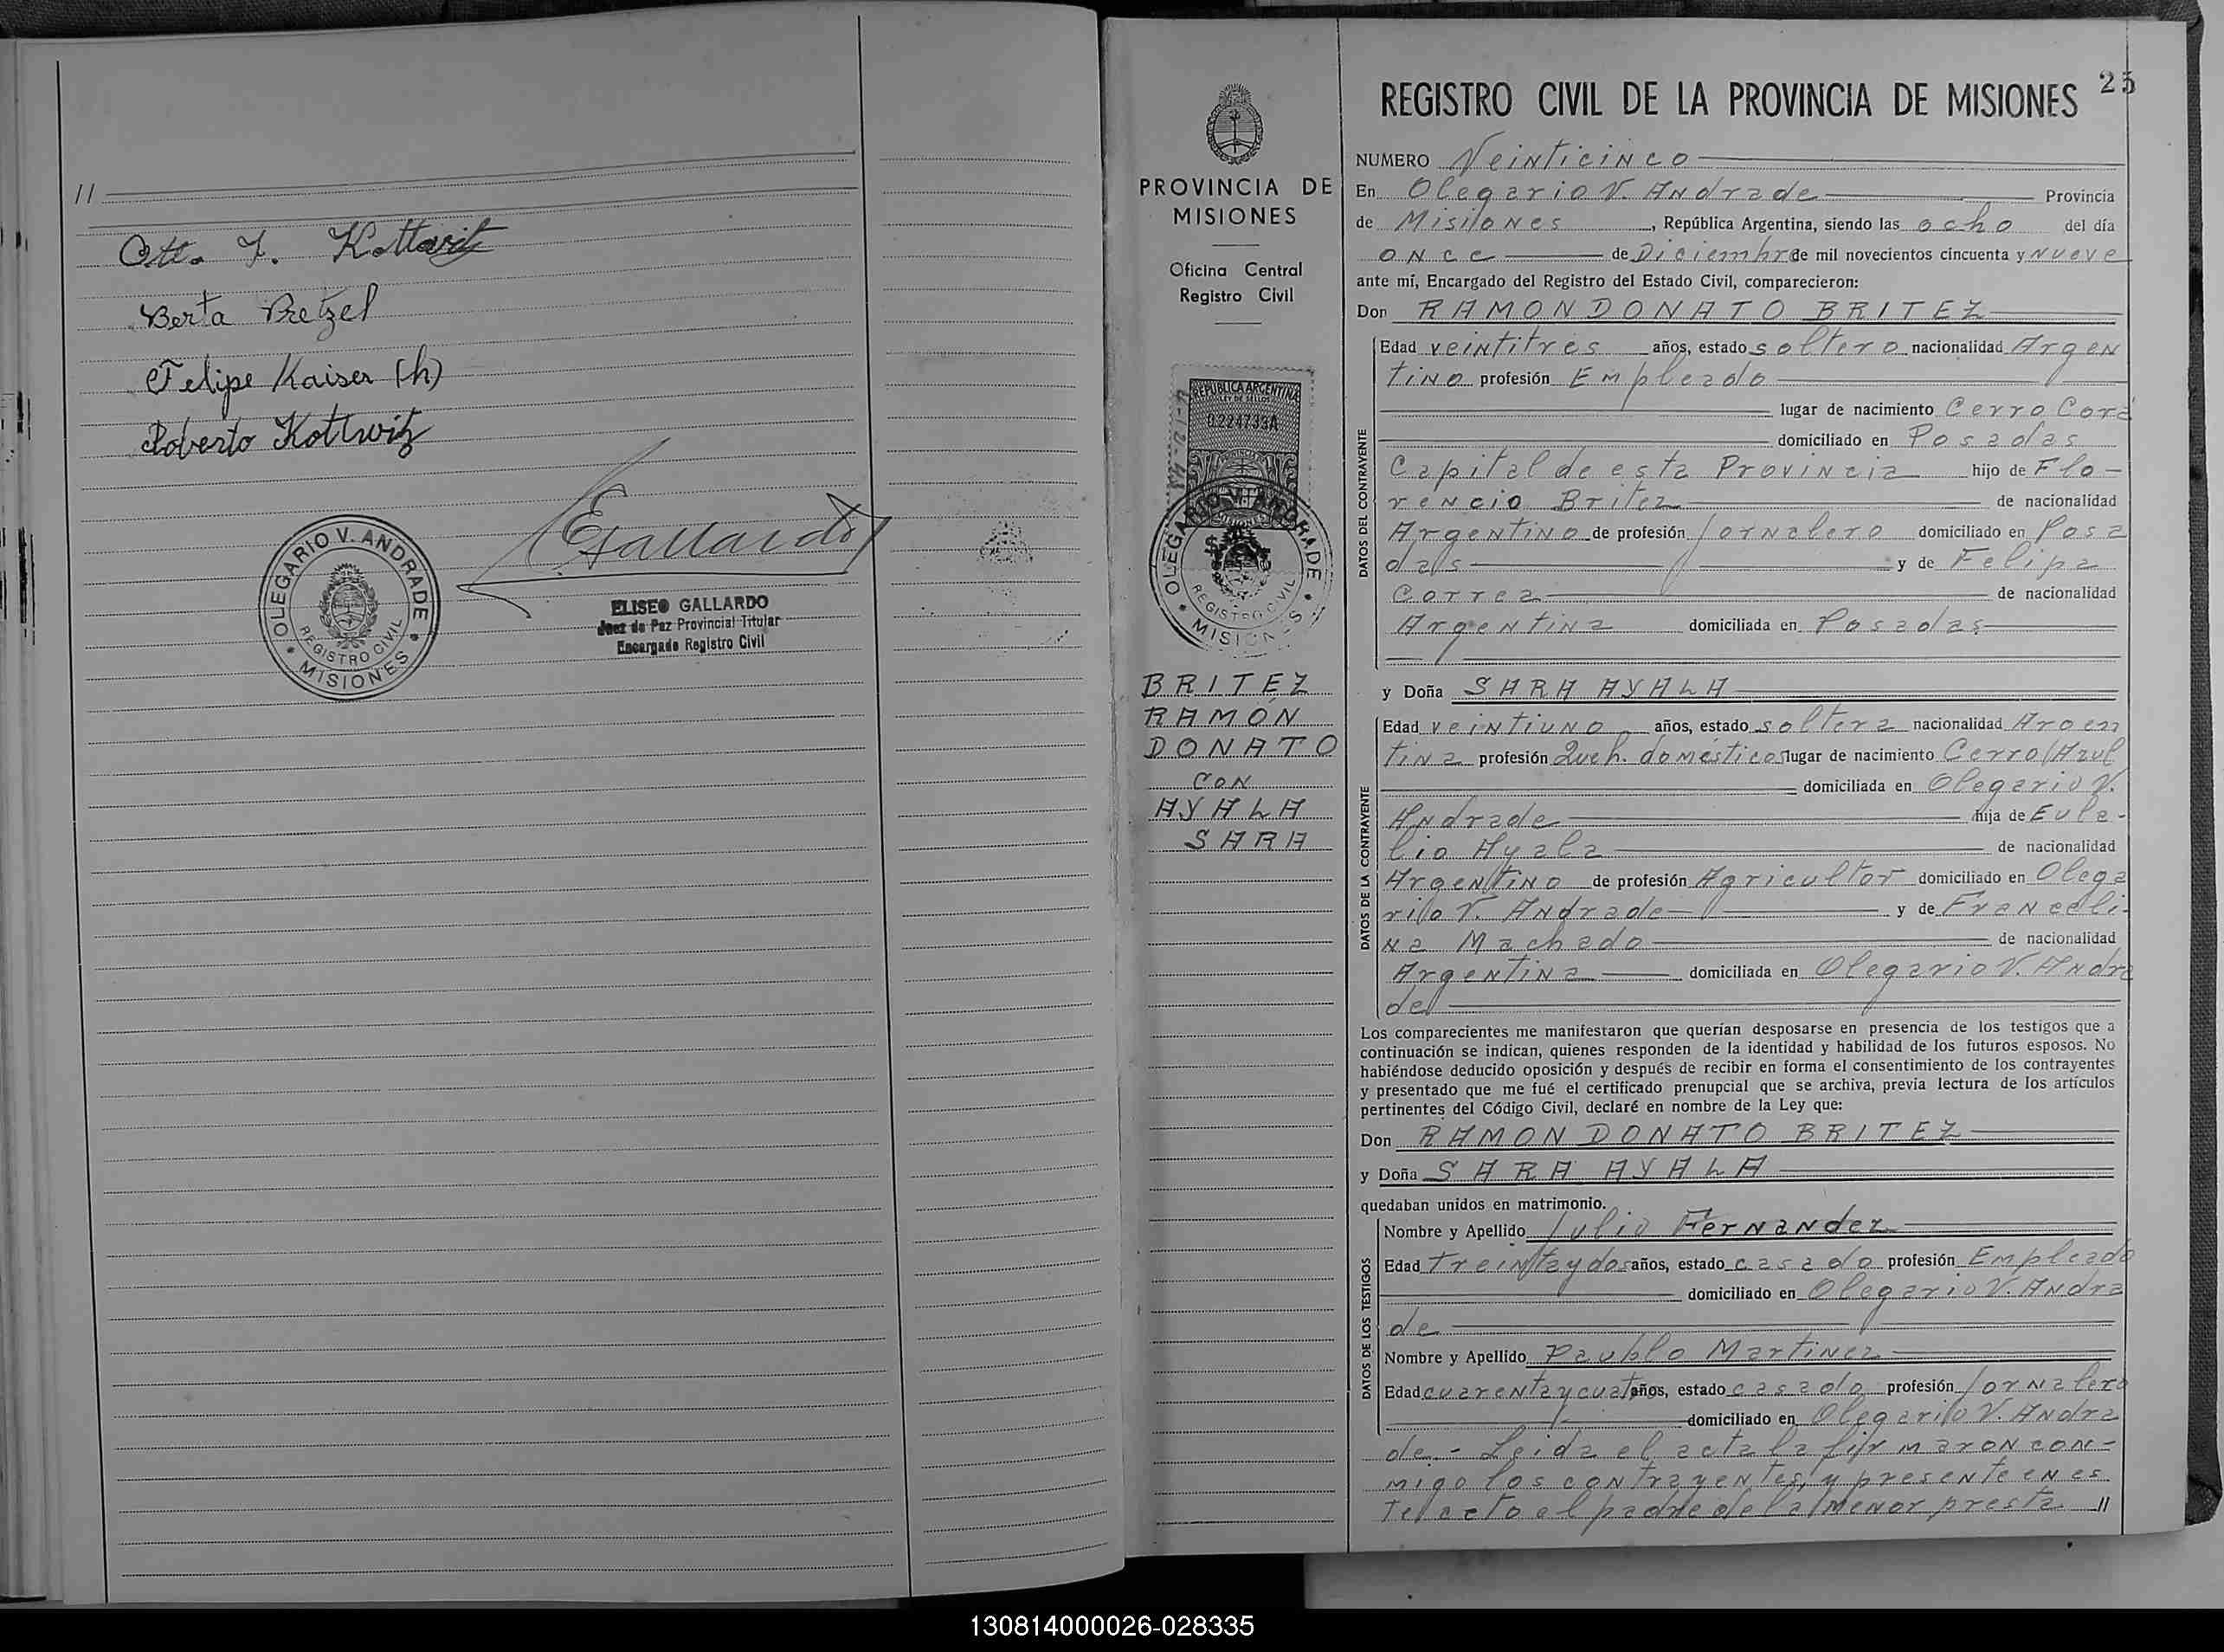 //
Otto F. Kottwitz
Berta Pretzel
Felipe Kaiser (h)
Roberto Kottwitz
EGallardo
OLEGARIO V. ANDRADE
REGISTRO CIVIL
MISIONES
ELISEO GALLARDO
Juez de Paz Provincial Titular
Encargado Registro Civil
PROVINCIA DE
MISIONES
Oficina Central
Registro Civil
REPUBLICA ARGENTINA
LEY DE SELLOS
0.224733A
OLEGARIO V. ANDRADE
REGISTRO CIVIL
MISIONES
BRITEZ
RAMÓN
DONATO
CON
AYALA
SARA
25
REGISTRO CIVIL DE LA PROVINCIA DE MISIONES
NUMERO Veinticinco
En Olegario V. Andrade Provincia
de Misiones, República Argentina, siendo las ocho del día
once de Diciembre de mil novecientos cincuenta y nueve
ante mí, Encargado del Registro del Estado Civil, comparecieron:
Don RAMON DONATO BRITEZ
DATOS DEL CONTRAYENTE
Edad veintitres años, estado soltero nacionalidad Argen
tino profesión Empleado
lugar de nacimiento Cerro Corá
domiciliado en Posadas
Capital de esta Provincia hijo de Flo-
rencio Britez de nacionalidad
Argentino de profesión Jornalero domiciliado en Posa
das y de Felipa
Correa de nacionalidad
Argentina domiciliada en Posadas
y Doña SARA AYALA
DATOS DE LA CONTRAYENTE
Edad veintiuno años, estado soltera nacionalidad Argen
tina profesión Queh. domésticos lugar de nacimiento Cerro Azul
domiciliada en Olegario V.
Andrade hija de Eula-
lio Ayala de nacionalidad
Argentino de profesión Agricultor domiciliado en Olega
rio V. Andrade y de Franceli-
na Machado de nacionalidad
Argentina domiciliada en Olegario V. Andra
de
Los comparecientes me manifestaron que querían desposarse en presencia de los testigos que a
continuación se indican, quienes responden de la identidad y habilidad de los futuros esposos. No
habiéndose deducido oposición y después de recibir en forma el consentimiento de los contrayentes
y presentado que me fué el certificado prenupcial que se archiva, previa lectura de los artículos
pertinentes del Código Civil, declaré en nombre de la Ley que:
Don RAMON DONATO BRITEZ
y Doña SARA AYALA
quedaban unidos en matrimonio.
DATOS DE LOS TESTIGOS
Nombre y Apellido Julio Fernandez
Edad treinta y dos años, estado casado profesión Empleado
domiciliado en Olegario V. Andra
de
Nombre y Apellido Paublo Martinez
Edad cuarenta y cuat años, estado casado profesión Jornalero
domiciliado en Olegario V. Andra
de.- Leida el acta la firmaron con-
migo los contrayentes, y presente en es
te acto el padre de la menor presta //
130814000026-028335